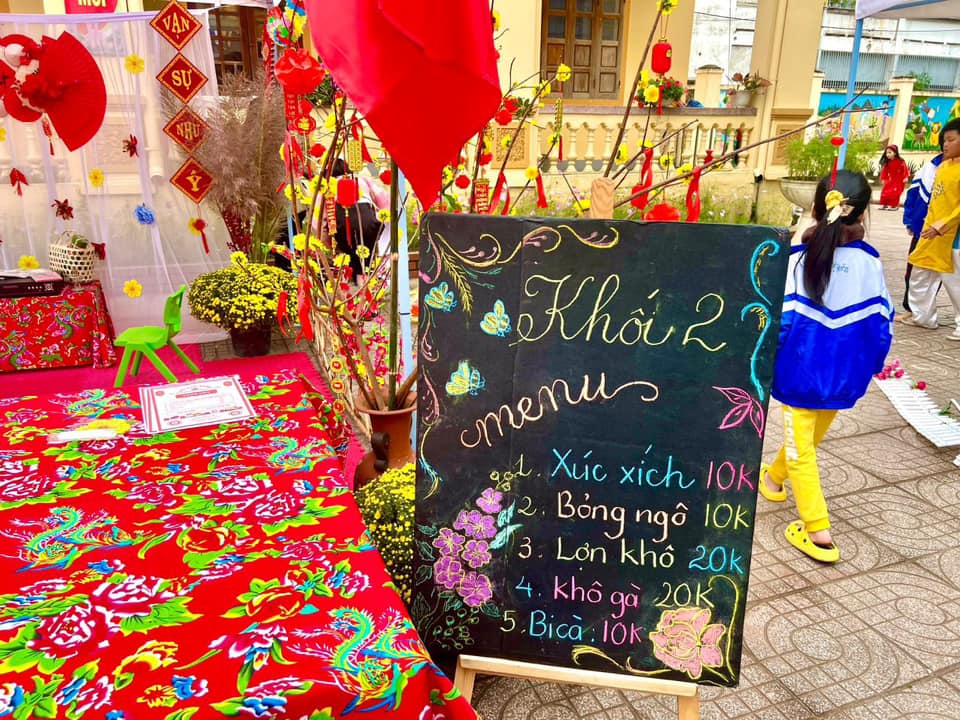 VẠN
SỰ
NHƯ
Ý
Khối 2
menu
1. Xúc xích 10K
2. Bỏng ngô 10K
3. Lợn khô 20K
4. khô gà 20K
5. Bicà: 10K